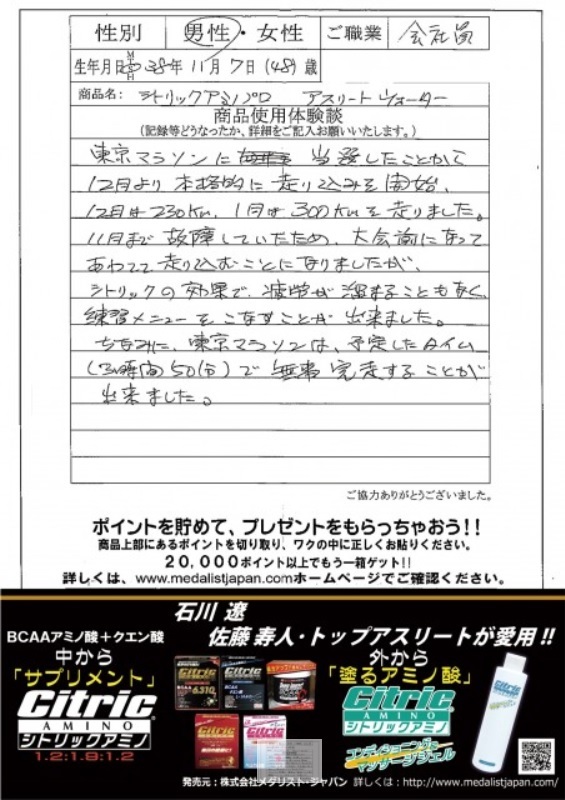 性別 男性・女性 ご職業 会社員
生年月日 38年11月7日(48)歳
商品名: シトリックアミノプロ アスリートウォーター
商品使用体験談
(記録等どうなったか、詳細をご記入お願いいたします。)
東京マラソンに 当選したことから
12月より 本格的に 走り込みを 開始、
12月は230Km、1月は300Kmを走りました。
11月まで 故障していたため、大会前になって
あわてて 走り込むことになりましたが、
シトリックの効果で、疲労が溜まることもなく
練習メニューをこなすことが 出来ました。
ちなみに、東京マラソンは、予定したタイム
(3時間50分)で 無事完走することが
出来ました。
ご協力ありがとうございました。
ポイントを貯めて、プレゼントをもらっちゃおう!!
商品上部にあるポイントを切り取り、ワクの中に正しくお貼りください。
20,000ポイント以上でもう一箱ゲット!!
詳しくは、www.medalistjapan.comホームページでご確認ください。
石川 遼
佐藤 寿人・トップアスリートが愛用!!
BCAAアミノ酸+クエン酸
中から
「サプリメント」
Citric
AMINO
シトリックアミノ
1.2:1.9:1.2
外から
「塗るアミノ酸」
Citric
AMINO
シトリックアミノ
コンディショニング&
マッサージジェル
発売元:株式会社メダリスト・ジャパン 詳しくは:http://www.medalistjapan.com/